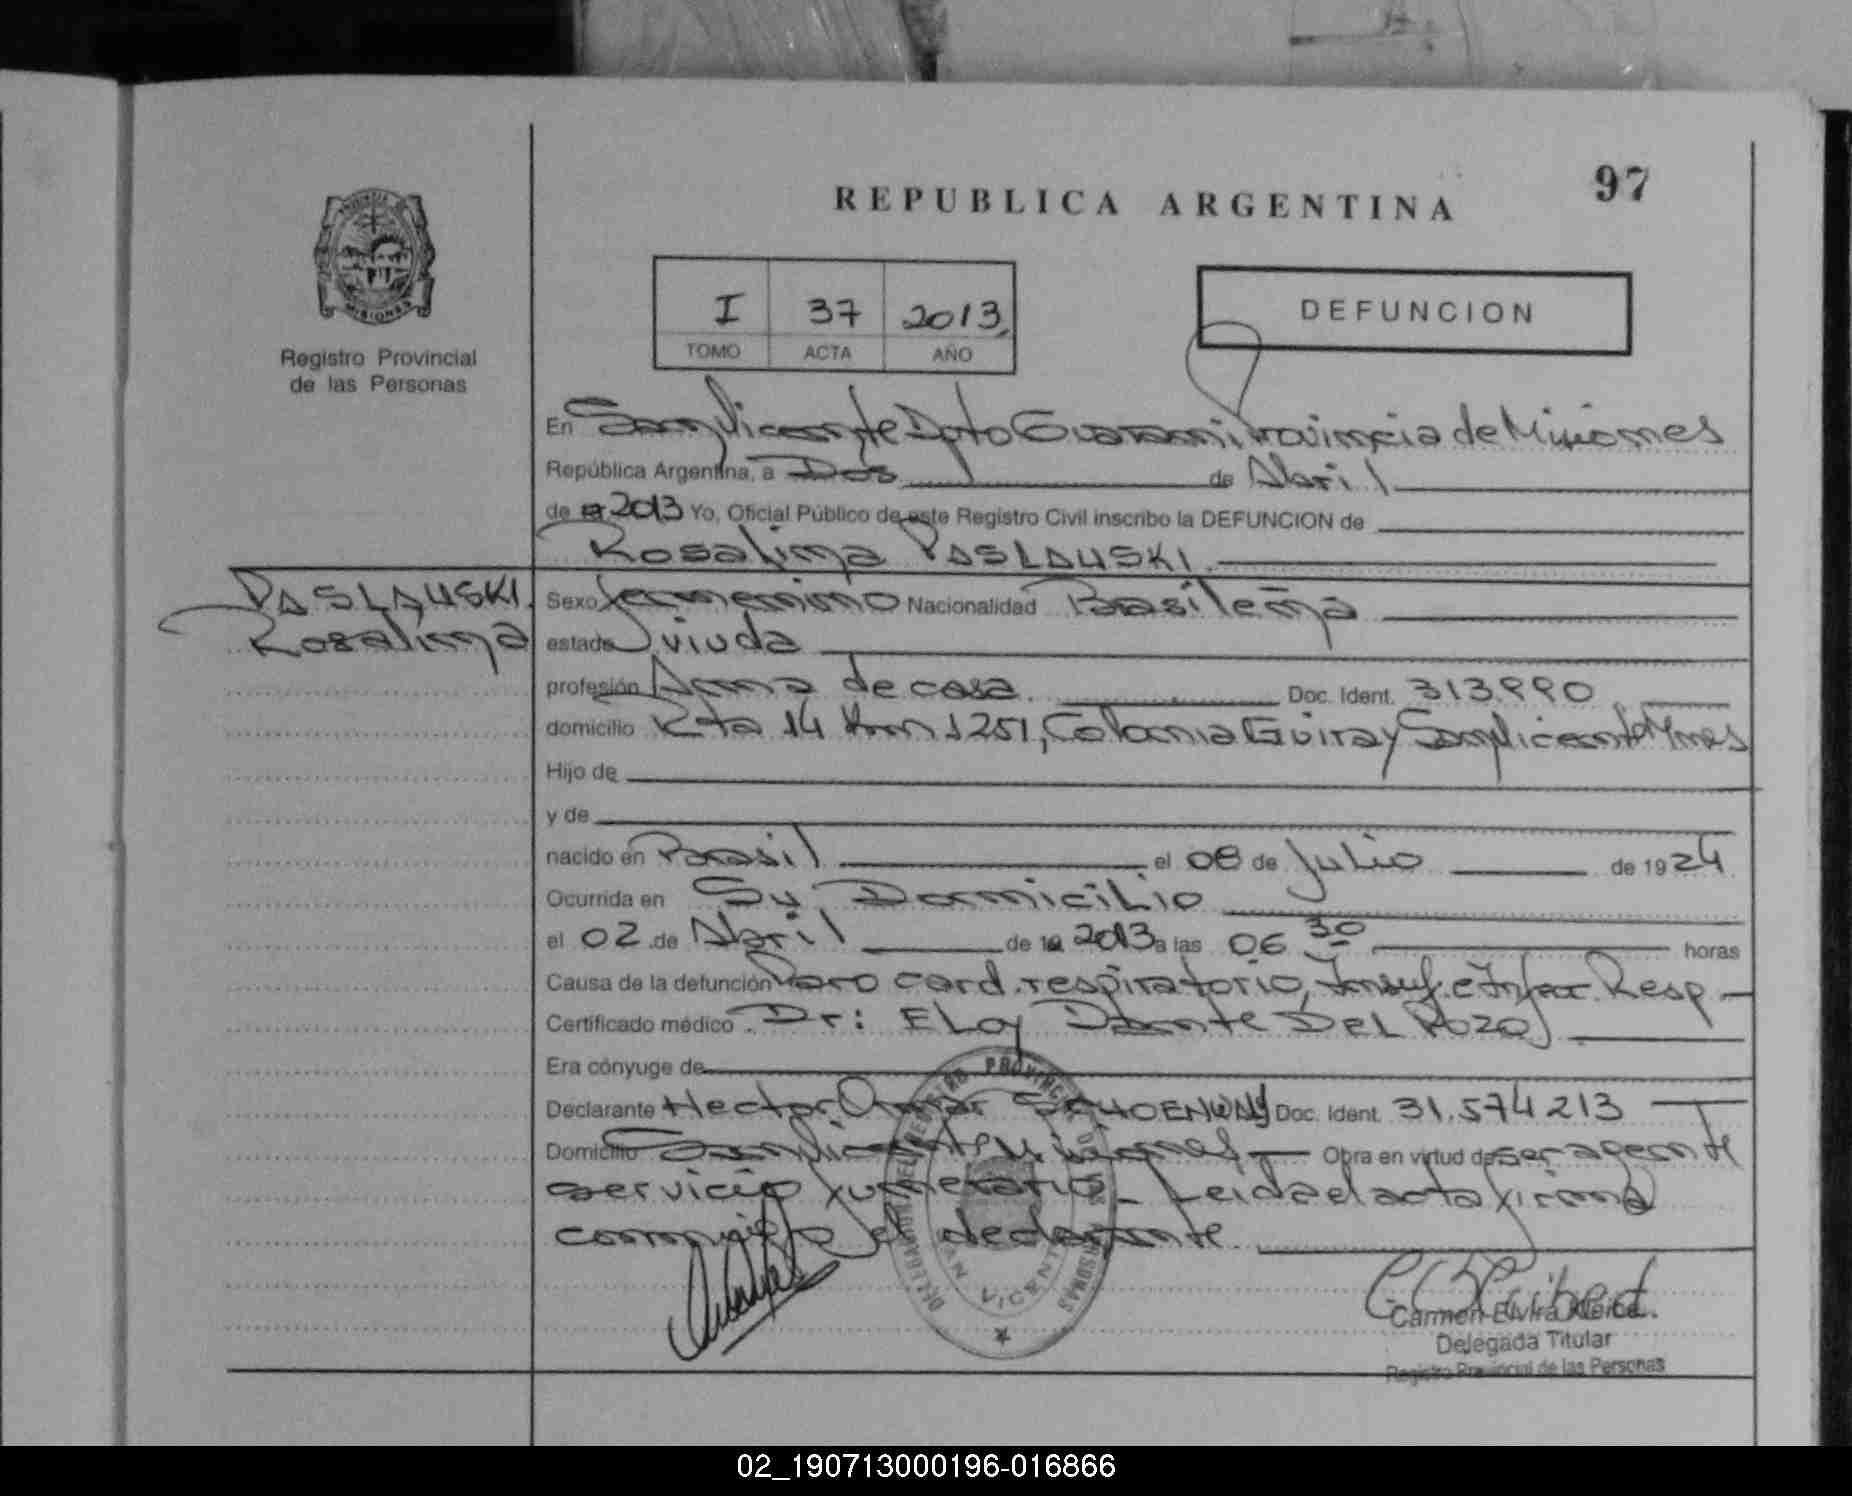 97
REPUBLICA ARGENTINA
PROVINCIA DE MISIONES
Registro Provincial
de las Personas
I 37 2013
TOMO ACTA AÑO
DEFUNCION
En San Vicente Dpto Guarani, Provincia de Misiones
República Argentina, a Dos de Abril
de 2013 Yo, Oficial Público de este Registro Civil inscribo la DEFUNCION de
Rosalina PASLAUSKI.
PASLAUSKI
Rosalina
Sexo femenino Nacionalidad Brasileña
estado viuda
profesión Ama de casa. Doc. Ident. 313.990
domicilio Rta 14 Km 1251, Colonia Guiray San Vicente Mnes
Hijo de
y de
nacido en Brasil el 08 de Julio de 1924
Ocurrida en Su Domicilio
el 02 de Abril de 2013 a las 06 30 horas
Causa de la defunción Paro card. respiratorio, Insuf. e Infec. Resp
Certificado médico Dr: Eloy Dante Del Pozo
Era cónyuge de
Declarante Hector Omar Doc. Ident. 31.574.213
Domicilio San Vicente Misiones Obra en virtud de ser agente
servicio funerario - Leida el acta firma
conmigo el declarante
DELEGACION DEL REGISTRO PROVINCIAL DE LAS PERSONAS
SAN VICENTE
Carmen Elvira
Delegada Titular
Registro Provincial de las Personas
02_190713000196-016866